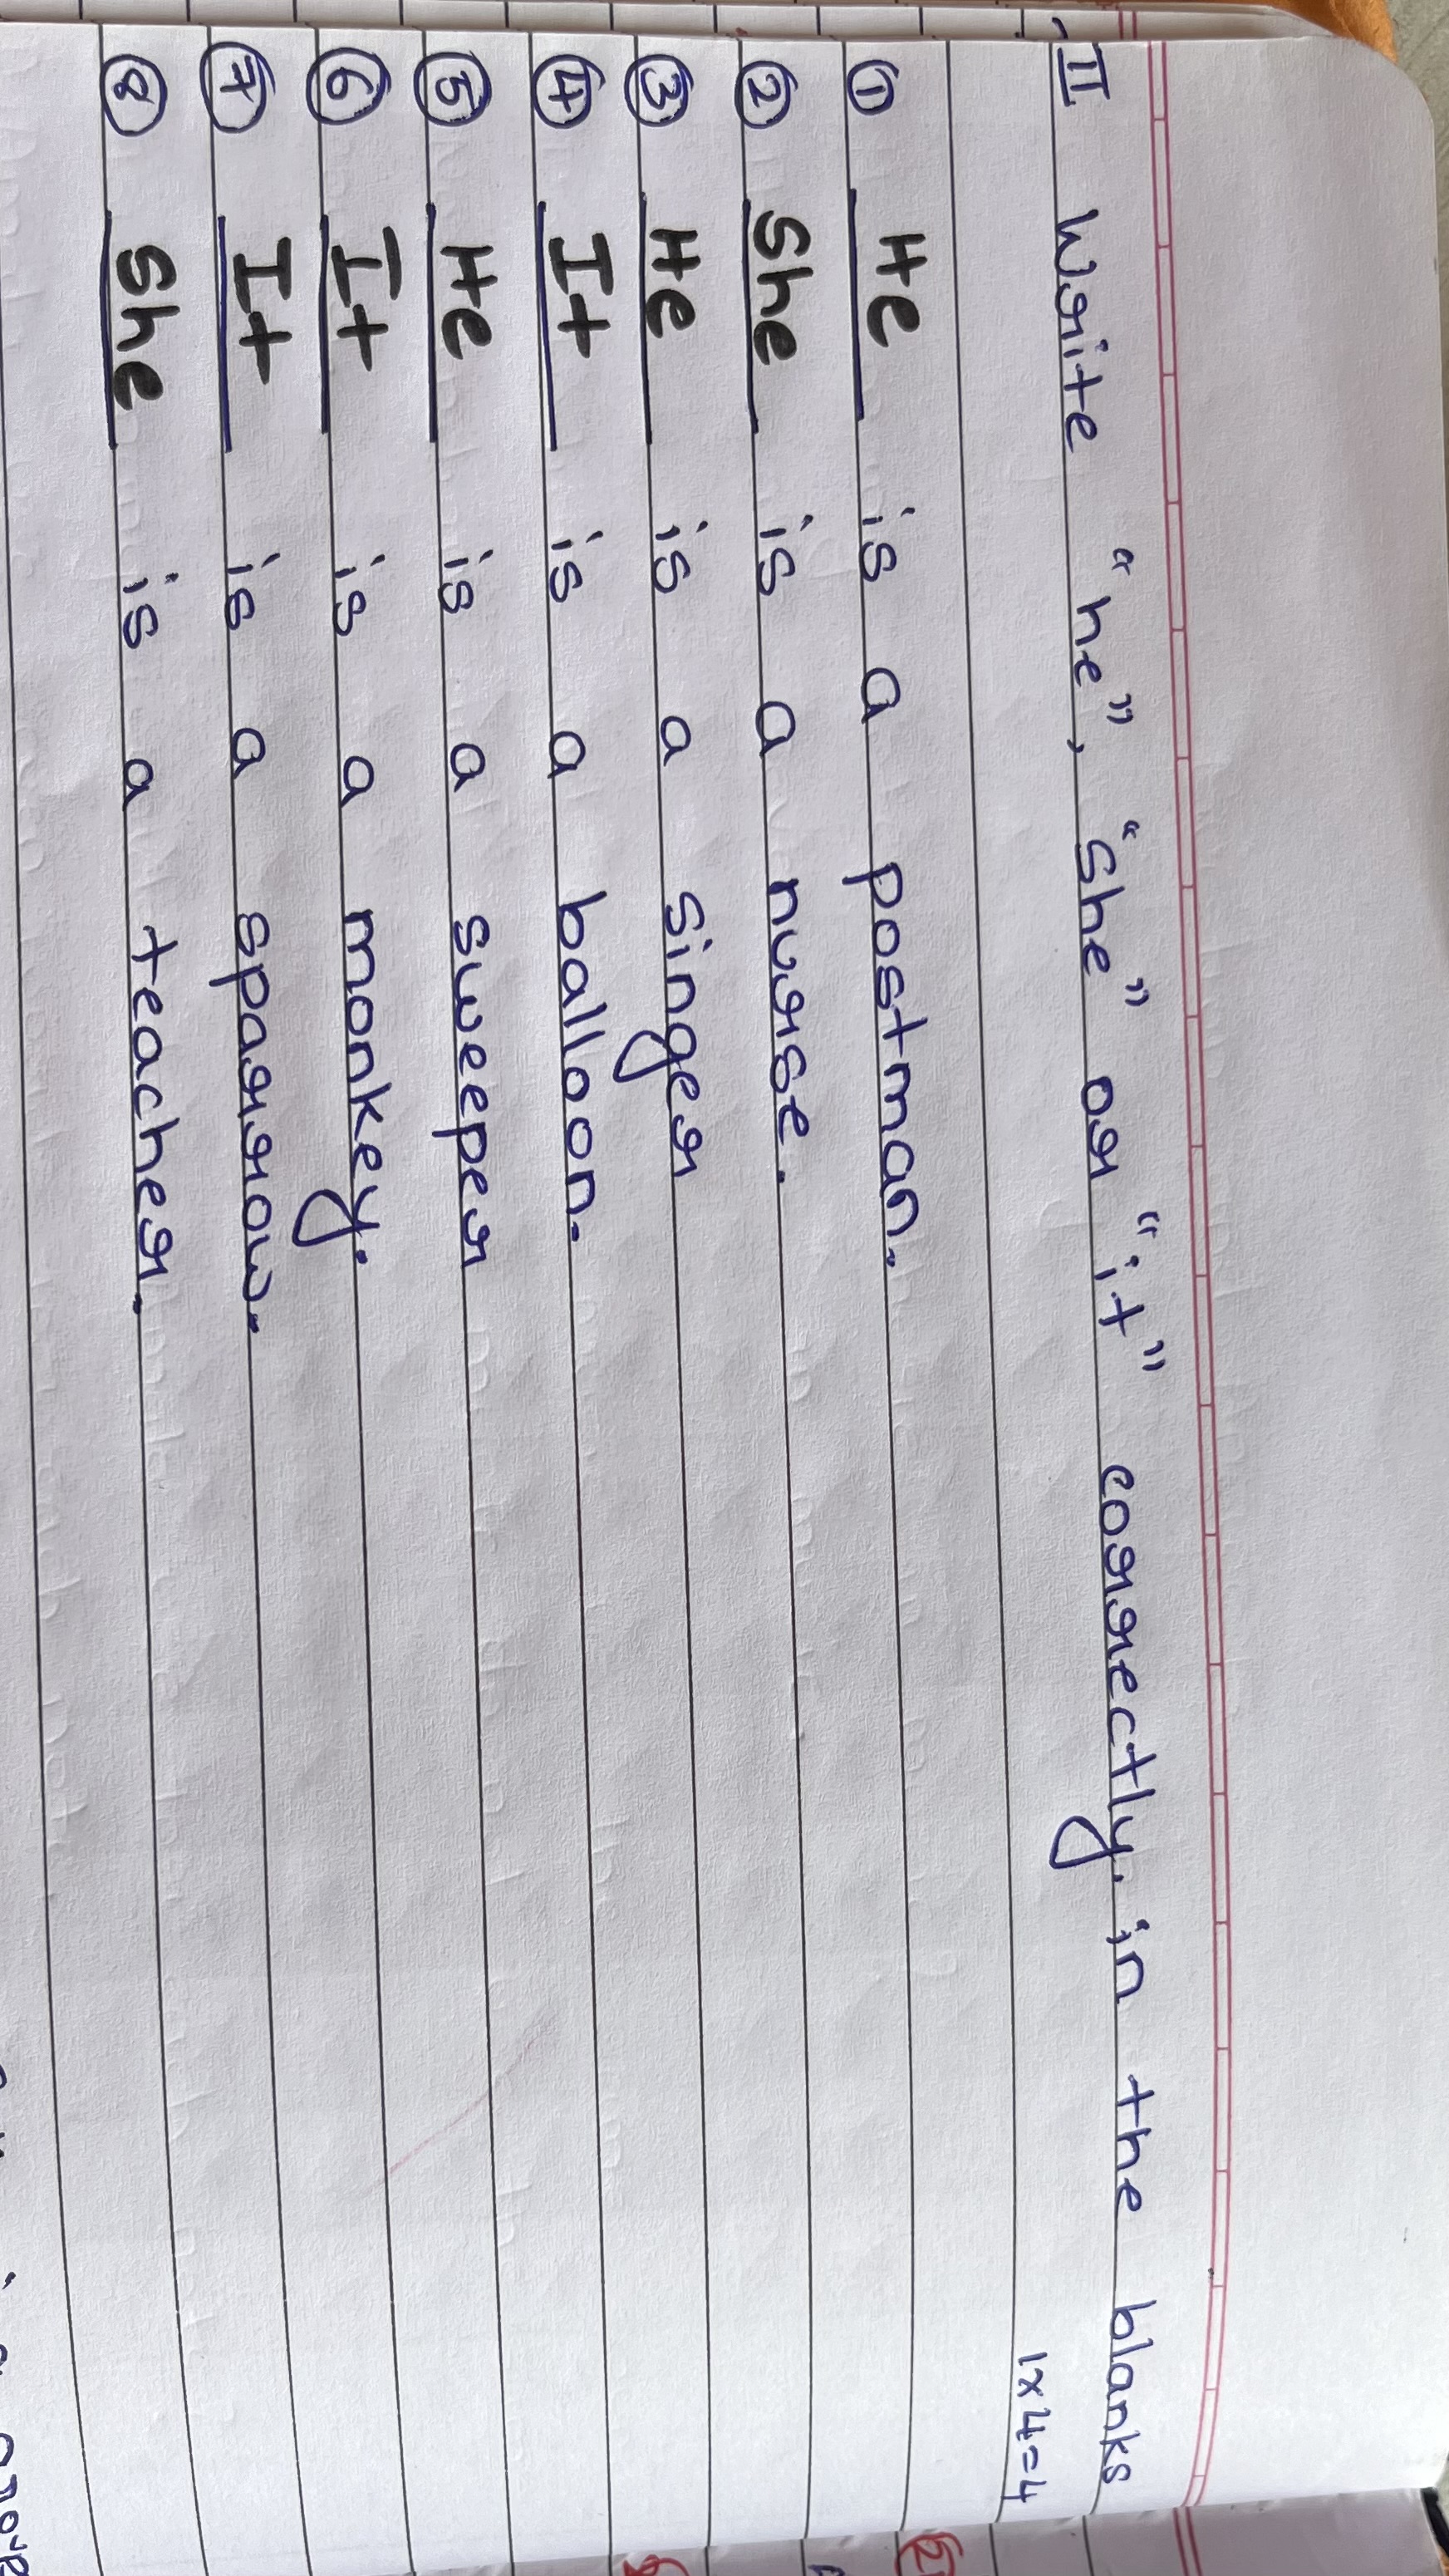 II Write "he", "She" or "it" correctly in the blanks
1x4=4
① He is a postman.
② She is a nurse.
③ He is a singer
④ It is a balloon.
⑤ He is a sweeper
⑥ It is a monkey.
⑦ It is a sparrow.
⑧ She is a teacher.